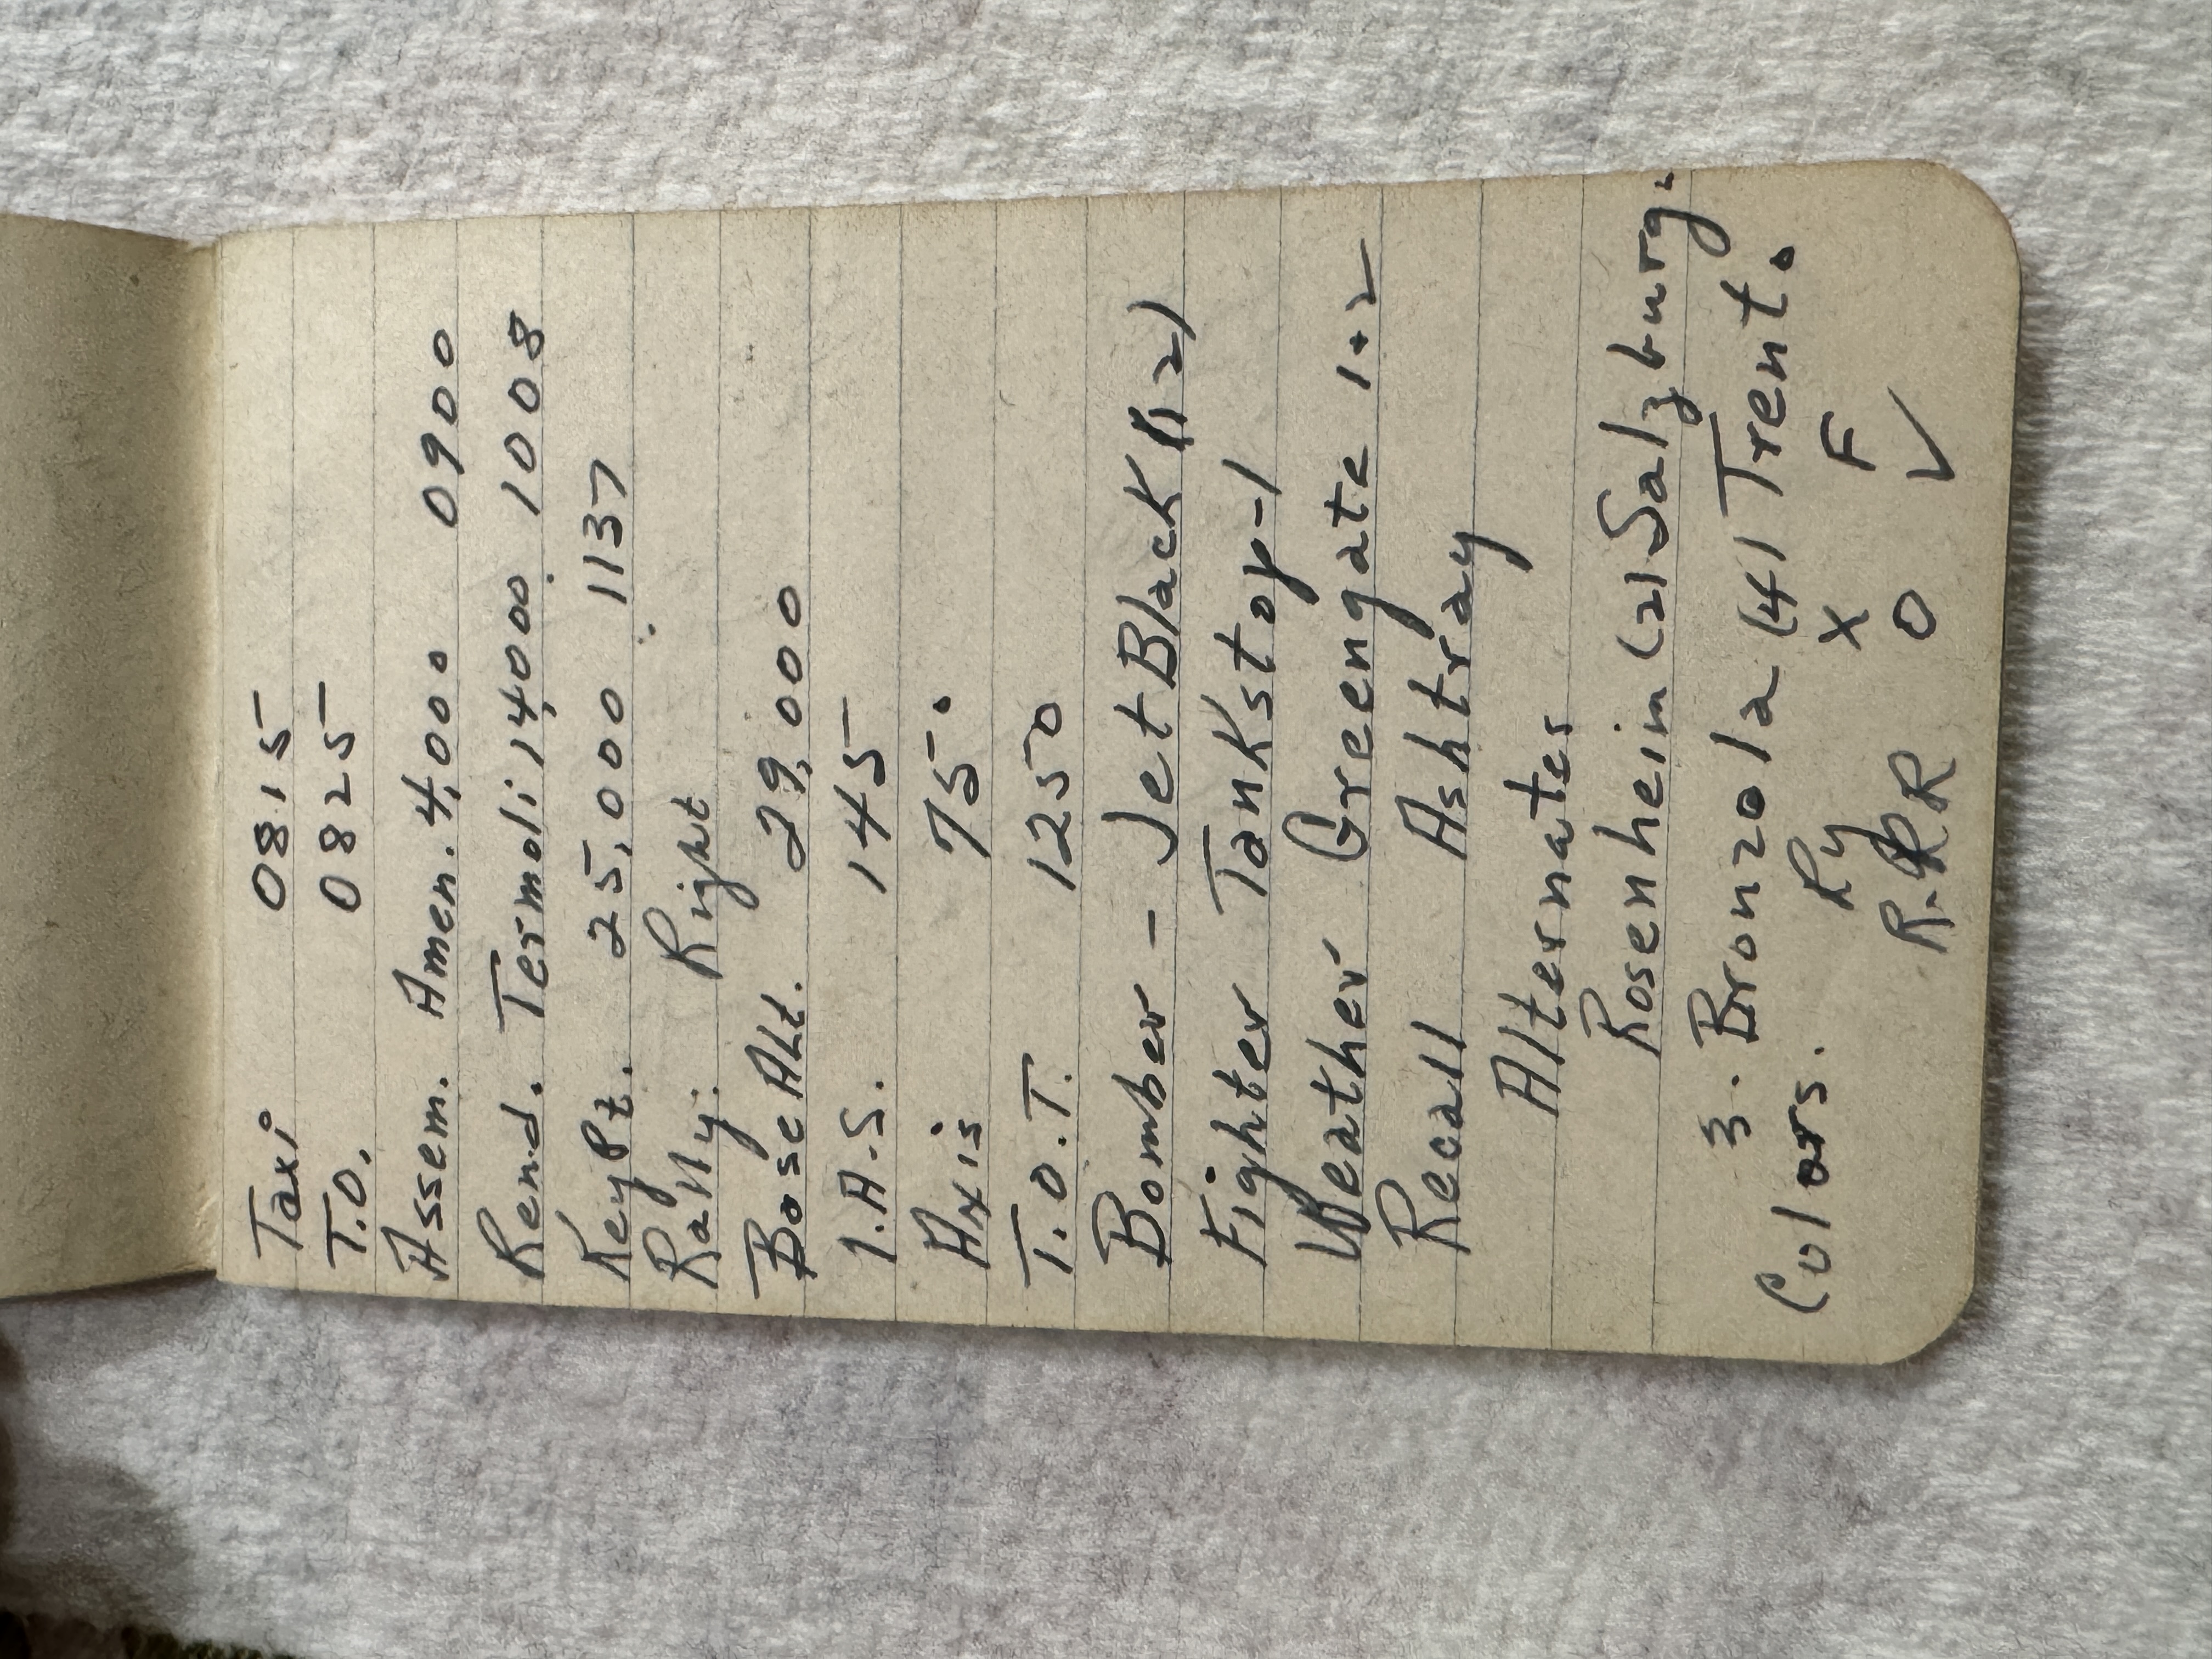 Taxi 0815
T.O. 0825
Assem. Amen. 4,000 0900
Rend. Termoli 14,000 1008
Key Pt. 25,000 1137
Rally: Right
Base Alt. 29,000
I.A.S. 145
Axis 75°
T.O.T. 1250
Bomber - Jet Black (12)
Fighter Tankstop-1
Weather Greengate 1+2
Recall Ashtray
Alternates
Rosenheim (2) Salzburg.
3. Bronzola (4) Trent.
Colors. Ry X F
R.R R O ✓